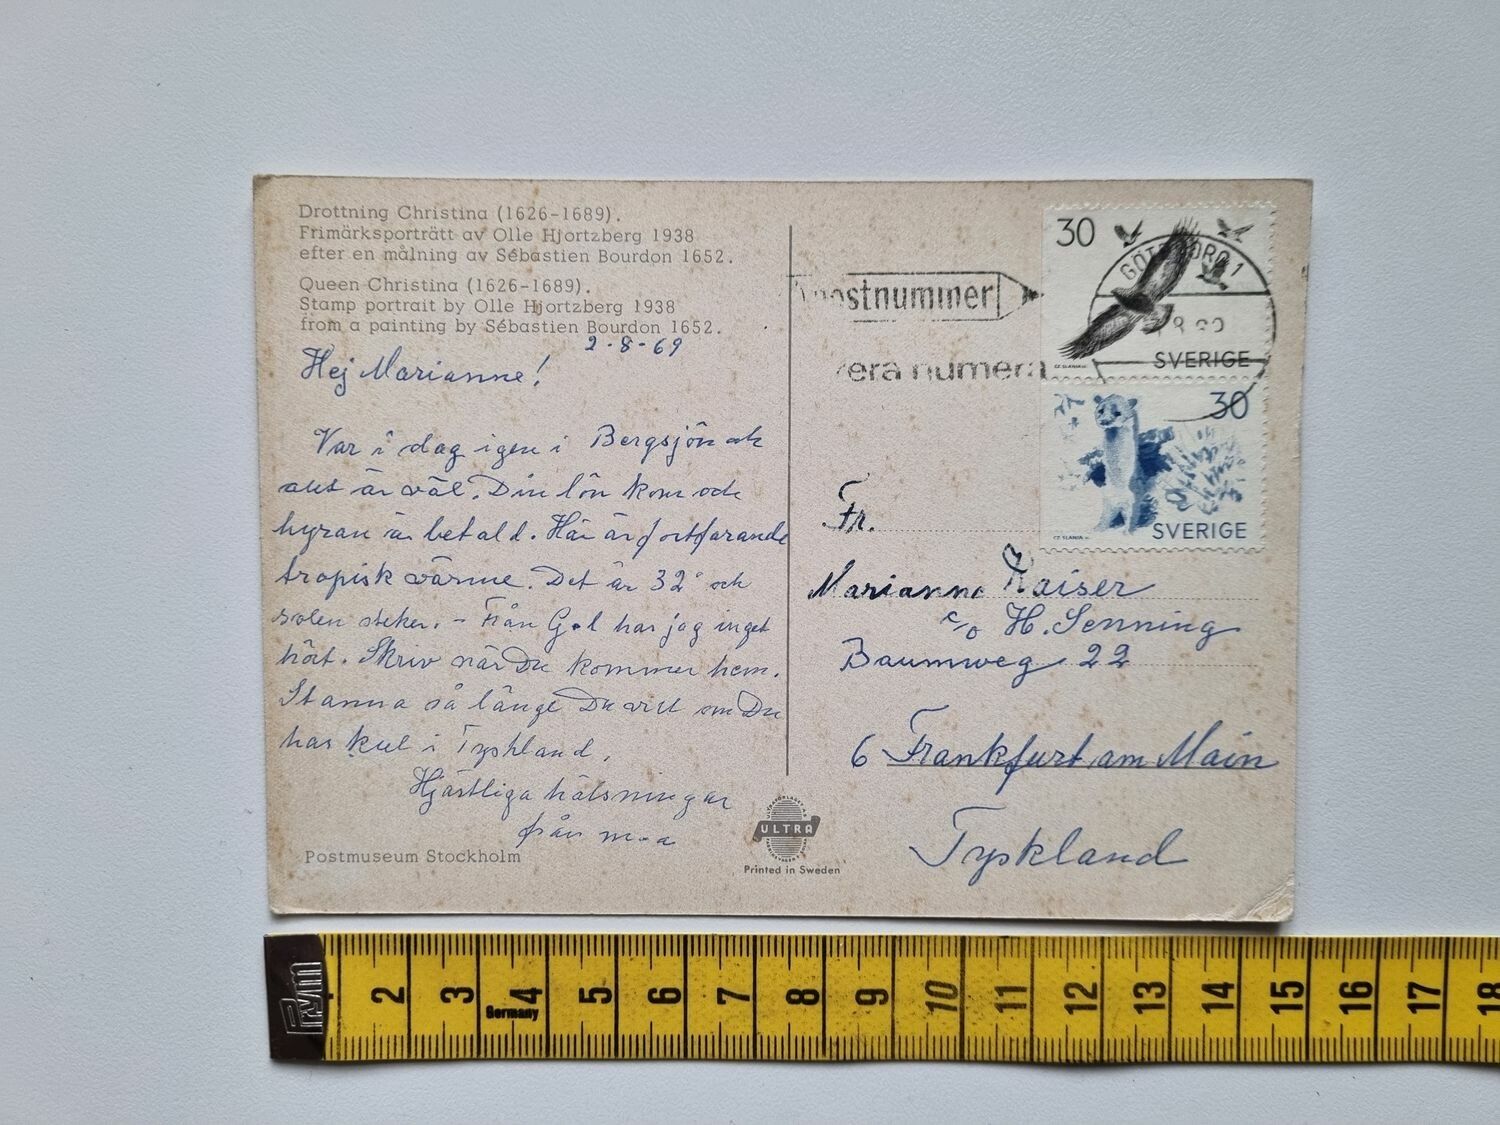 Drottning Christina (1626-1689).
Frimärksporträtt av Olle Hjortzberg 1938
efter en målning av Sébastien Bourdon 1652.
Queen Christina (1626-1689).
Stamp portrait by Olle Hjortzberg 1938
from a painting by Sébastien Bourdon 1652.
2-8-69
Hej Marianne!
Var i dag igen i Bergsjön och
allt är väl. Din lön kom och
hyran är betald. Här är fortfarande
tropisk värme. Det är 32° och
solen steker. - Från G-l har jag inget
hört. Skriv när Du kommer hem.
Stanna så länge Du vill om Du
har kul i Tyskland.
Hjärtliga hälsningar
från m-a
Postmuseum Stockholm
ULTRA
Printed in Sweden
postnummer
numera
GÖTEBORG 1
30
SVERIGE
CZ. SLANIA
30
SVERIGE
CZ. SLANIA
Fr.
Marianne Kaiser
c/o H. Senning
Baumweg 22
6 Frankfurt am Main
Tyskland
2 3 4 5 6 7 8 9 10 11 12 13 14 15 16 17 18
Germany